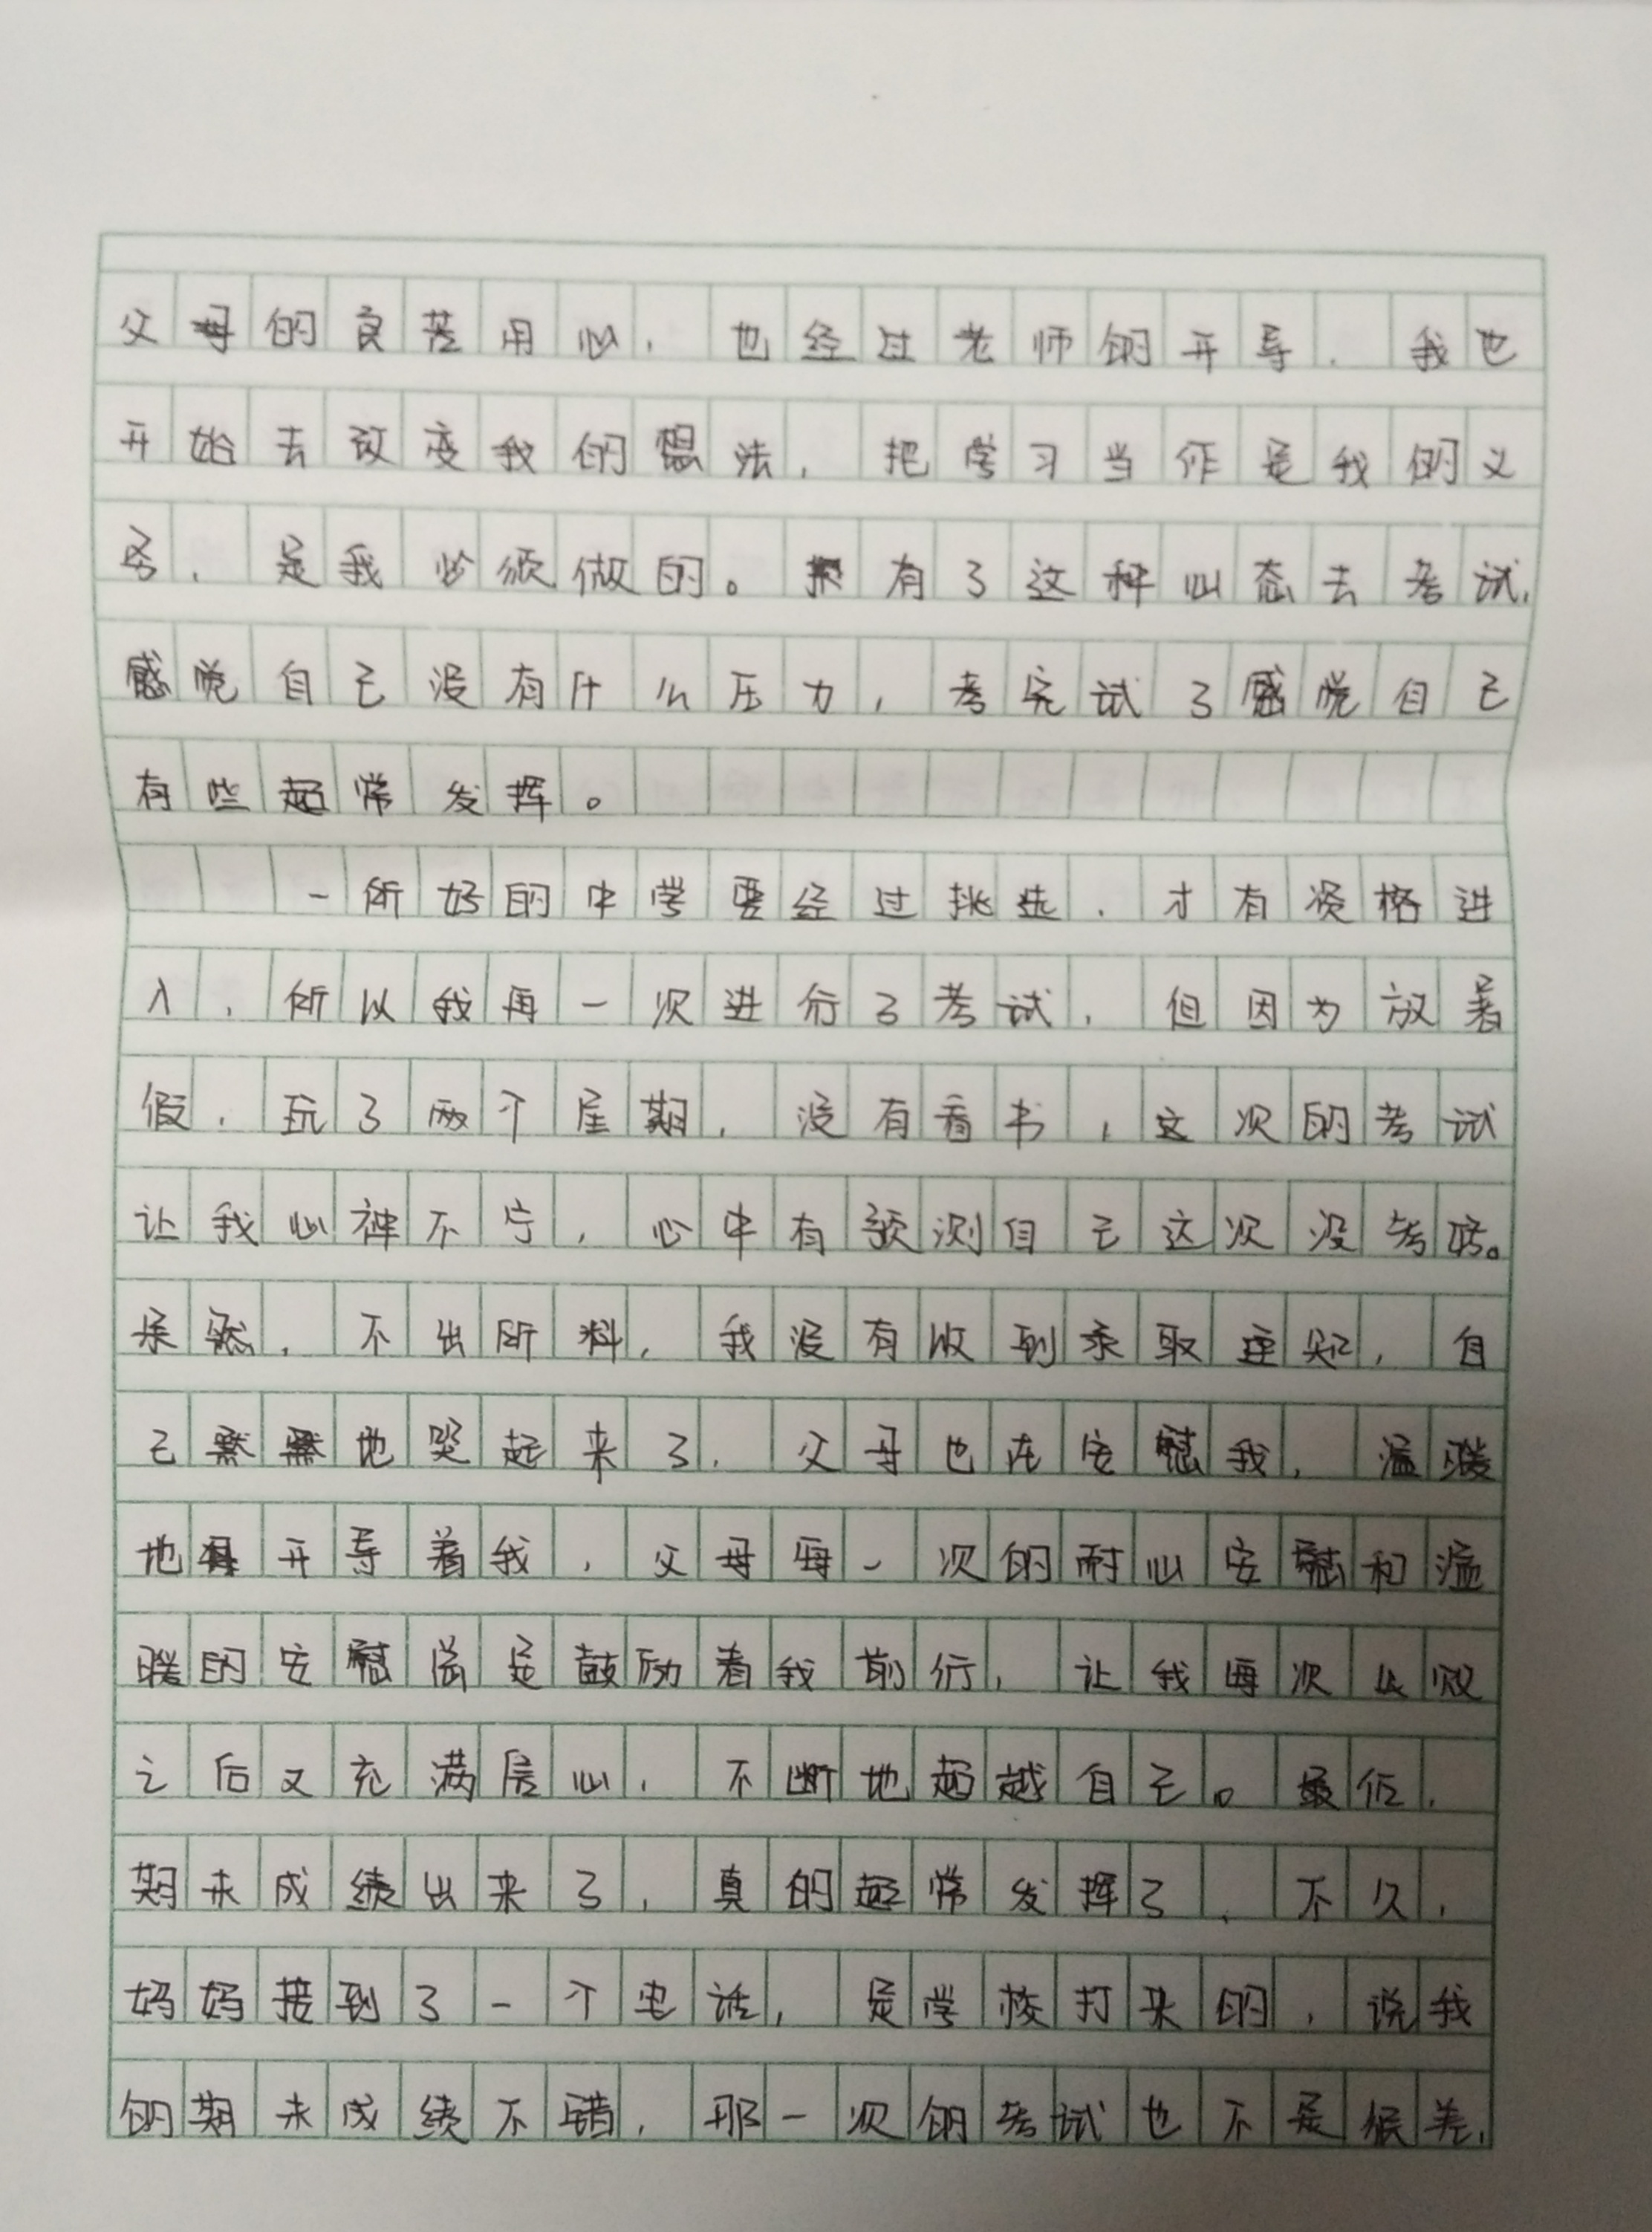 父母的良苦用心，也经过老师的开导，我也
开始去改变我的想法，把学习当作是我的义
务，是我必须做的。有了这种心态去考试，
感觉自己没有什么压力，考完试了感觉自己
有些超常发挥。
一所好的中学要经过挑选，才有资格进
入，所以我再一次进行了考试，但因为放着
假，玩了两个星期，没有看书，这次的考试
让我心神不宁，心中有预测自己这次没考好。
果然，不出所料，我没有收到录取通知，自
己默默地哭起来了，父母也在安慰我，温暖
地开导着我，父母每一次的耐心安慰和温
暖的安慰总是鼓励着我前行，让我每次失败
之后又充满信心，不断地超越自己。最后，
期末成绩出来了，真的超常发挥了，不久，
妈妈接到了一个电话，是学校打来的，说我
的期末成绩不错，那一次的考试也不是很差，